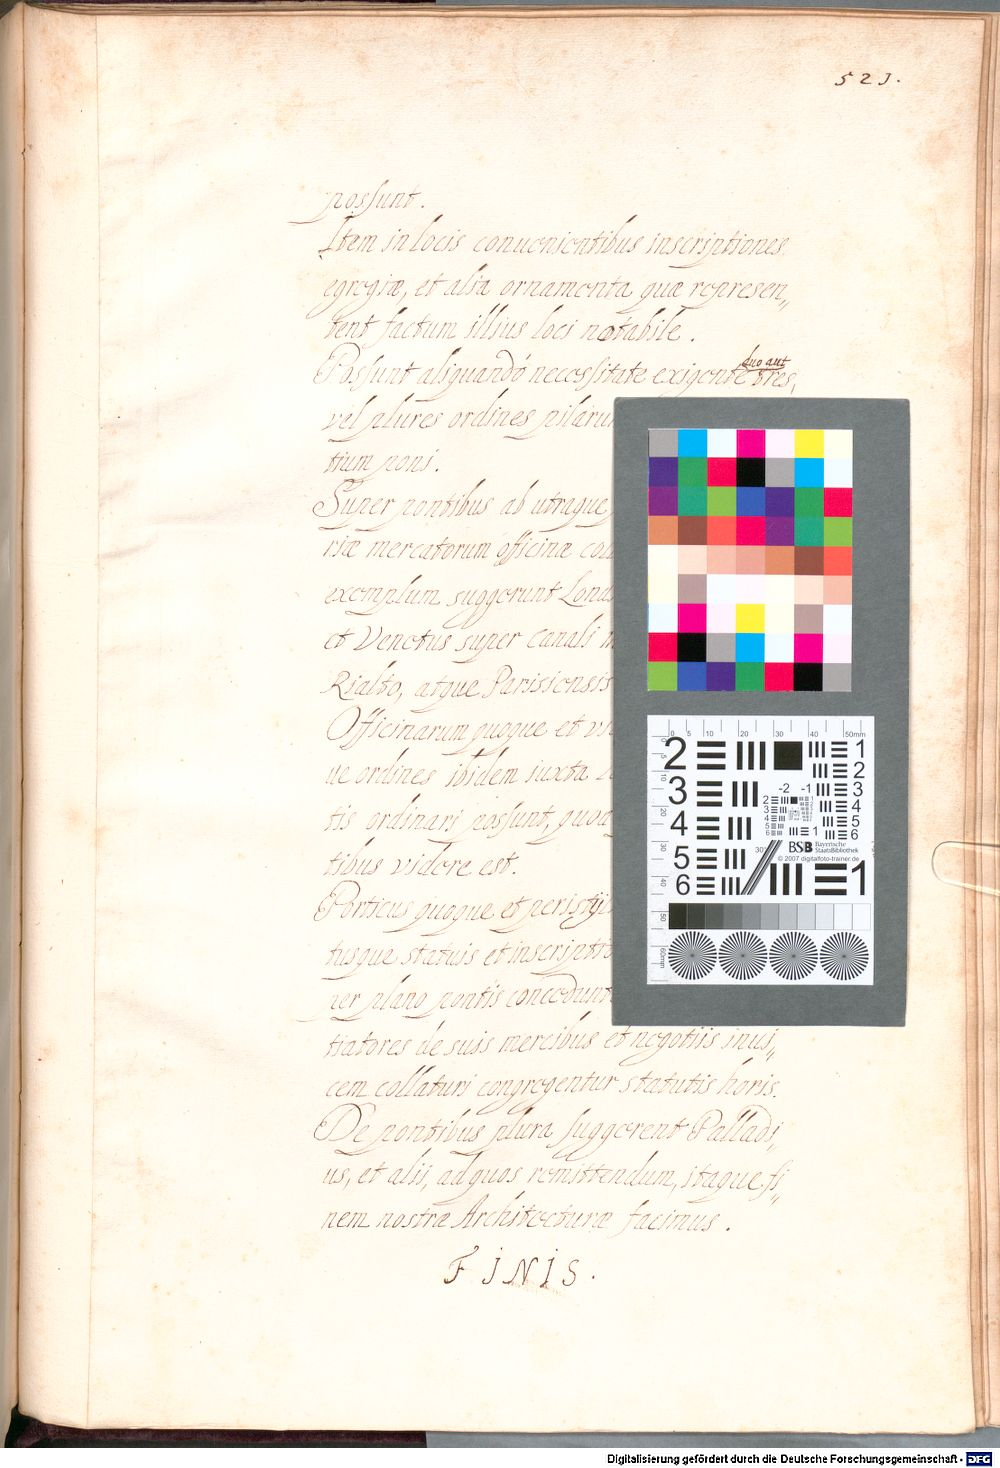 523.
possunt.
Item in locis conuenientibus inscriptiones
egregiæ, et alia ornamenta quæ represen,,
tent factum illius loci notabile.
duo aut
Possunt aliquando necessitate exigente tres,
vel plures ordines pilarum
tium poni.
Super pontibus ab utraque
riæ mercatorum officinæ
exemplum suggerunt
et Venetus super canali
Rialto, atque Parisiensis
Officinarum quoque et
ue ordines ibidem iuxta
tis ordinari possunt,
tibus videre est.
Porticus quoque et
tusque statuis et
per plano pontis concedunt
tiatores de suis mercibus et negotiis inui,,
cem collaturi congregentur statutis horis.
De pontibus plura suggerent Palladi,,
us, et alii, ad quos remittendum, itaque fi,,
nem nostræ Architecturæ facimus.
FINIS.
0 5 10 20 30 40 50mm
2 3 4 5 6
1 2 3 4 5 6
-2 -1
BSB Bayerische
StaatsBibliothek
© 2007 digitalfoto-trainer.de
1
Digitalisierung gefördert durch die Deutsche Forschungsgemeinschaft - DFG